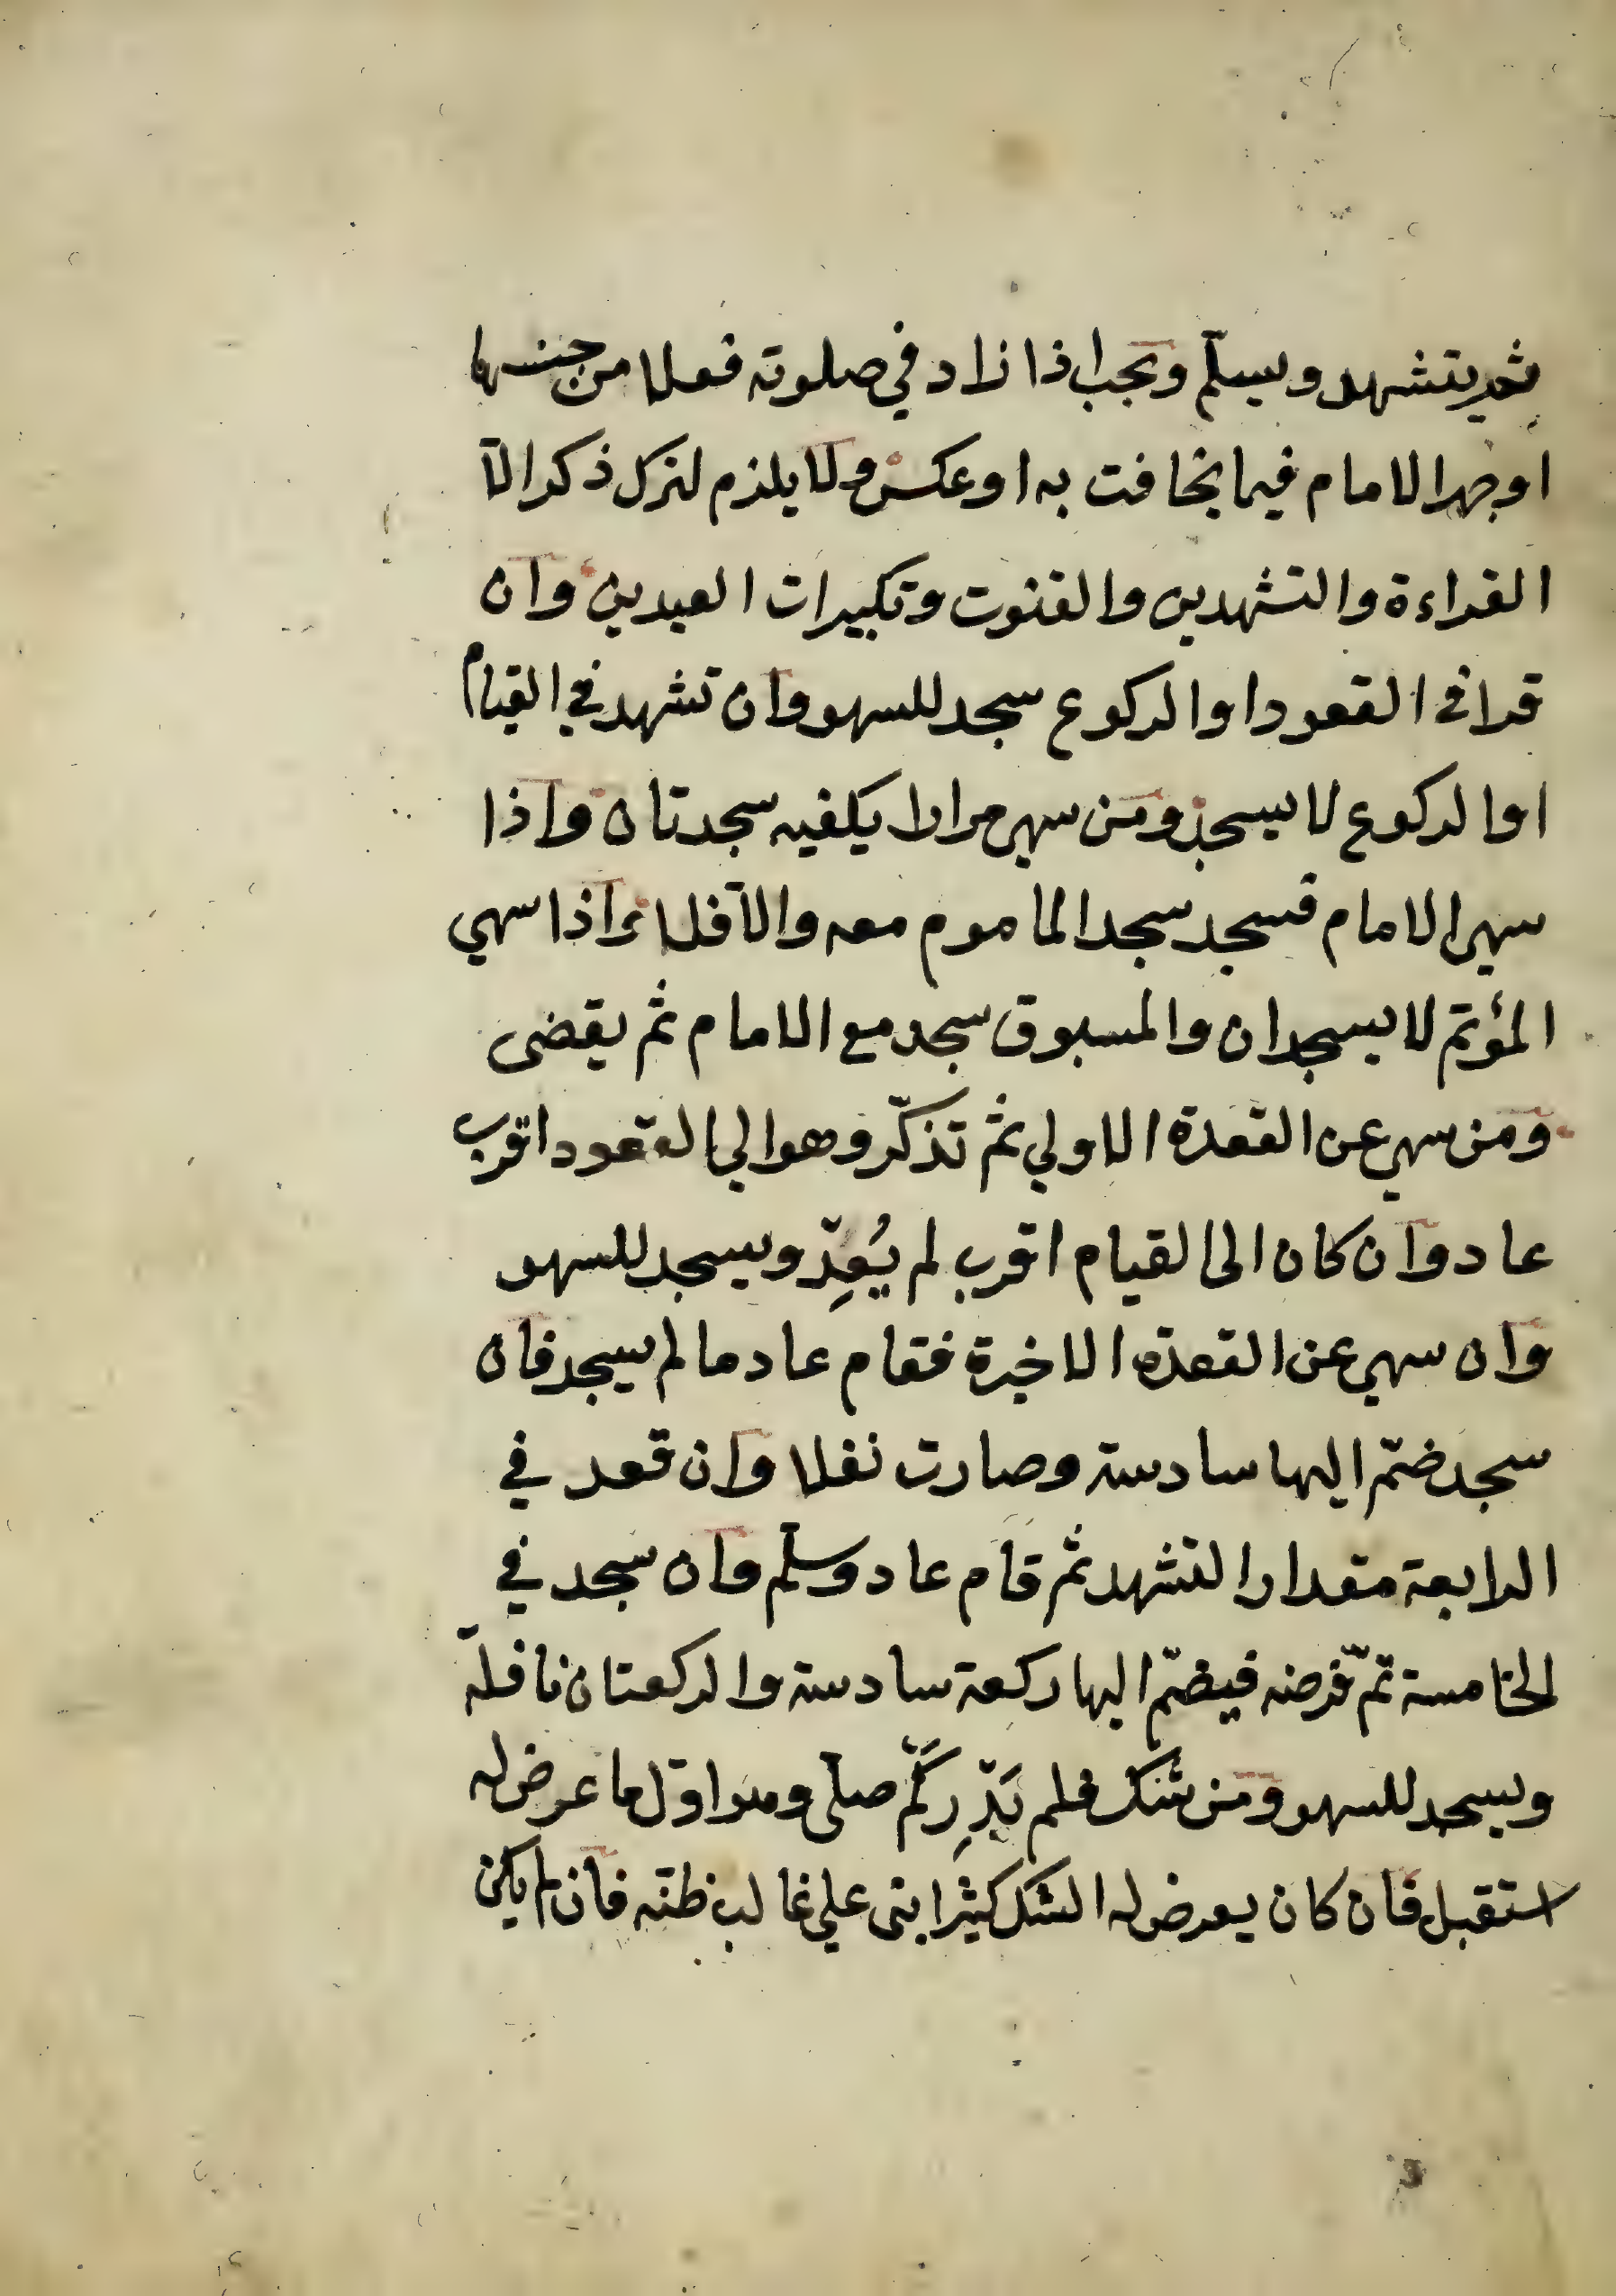 ثم يتشهد ويسلّم ويجب اذا زاد في صلوته فعلا من جنسها
او جهر الامام فيما يخافت به او عكس ولا يلزم لترك ذكر الّا
القراءة والتشهدين والقنوت وتكبيرات العيدين وان
قرا في القعود او الركوع سجد للسهو وان تشهد في القيام
او الركوع لا يسجد ومن سهي مرارا يكفيه سجدتان واذا
سهي الامام فسجد سجد الماموم معه والّا فلا واذا سهي
المؤتم لا يسجدان والمسبوق سجد مع الامام ثم يقضى
ومن سهي عن القعدة الاولي ثم تذكّر وهو الي القعود اقرب
عاد وان كان الى القيام اقرب لم يُعِدّ ويسجد للسهو
وان سهي عن القعدة الاخيرة فقام عاد ما لم يسجد فان
سجد ضمّ اليها سادسة وصارت نفلا وان قعد في
الرابعة مقدار التشهد ثم قام عاد وسلّم وان سجد في
الخامسة تمّ فرضه فيضمّ اليها ركعة سادسة والركعتان نافلة
ويسجد للسهو ومن شك فلم يَدْرِ كَمْ صلّى وهو اوّل ما عرض له
استقبل فان كان يعرض له الشك كثيرا بنى علي غالب ظنّه فان لم يكن